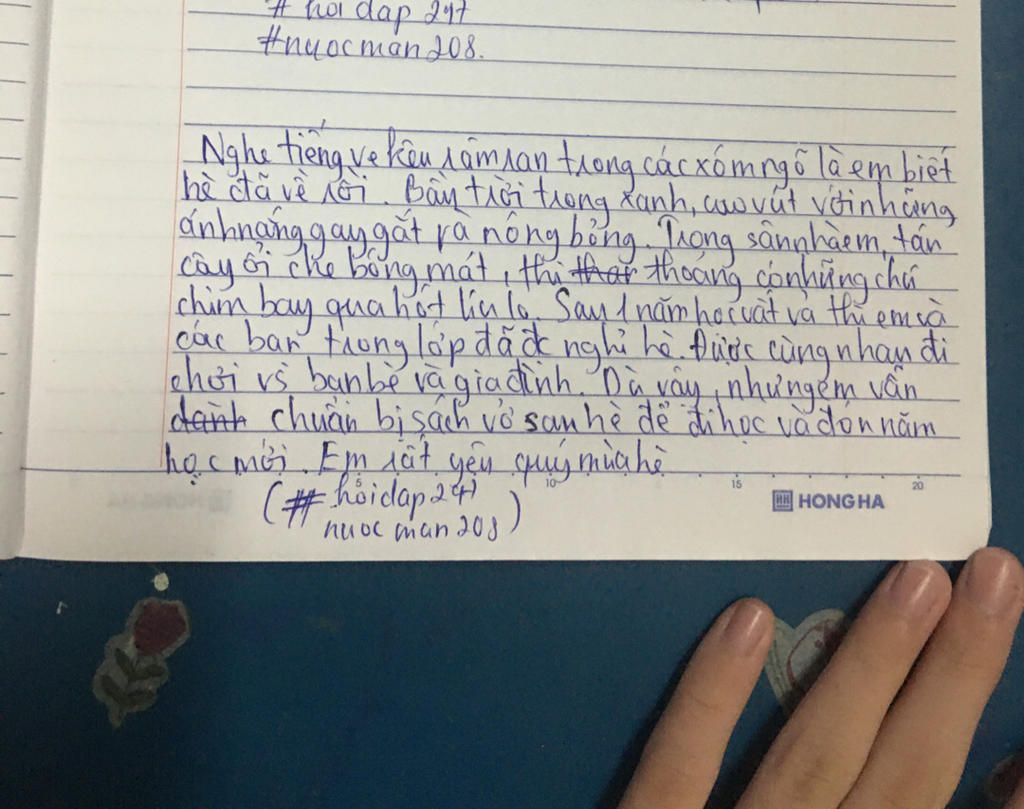 # hoi dap 247
#nuocman208.
Nghe tiếng ve kêu râm ran trong các xóm ngõ là em biết
hè đã về rồi. Bầu trời trong xanh, cao vút với những
ánh nắng gay gắt và nóng bỏng. Trong sân nhà em, tán
cây ổi che bóng mát, thi thoảng có những chú
chim bay qua hót líu lo. Sau 1 năm học vất vả thì em và
các bạn trong lớp đã đc nghỉ hè. Được cùng nhau đi
chơi vs bạn bè và gia đình. Dù vậy, nhưng em vẫn
chuẩn bị sách vở sau hè để đi học và đón năm
học mới. Em rất yêu quý mùa hè
(# hoidap247
nuoc man 208)
5 10 15 20
HH HONG HA